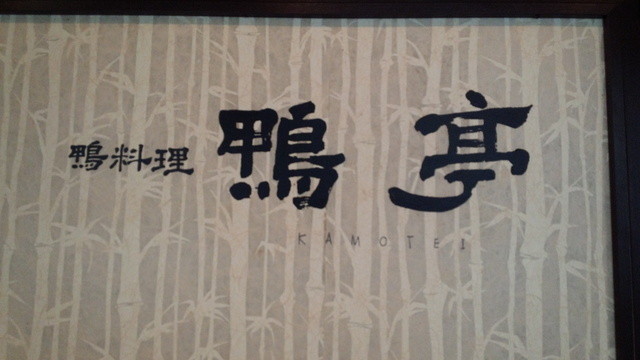 鴨料理 鴨亭
KAMOTEI